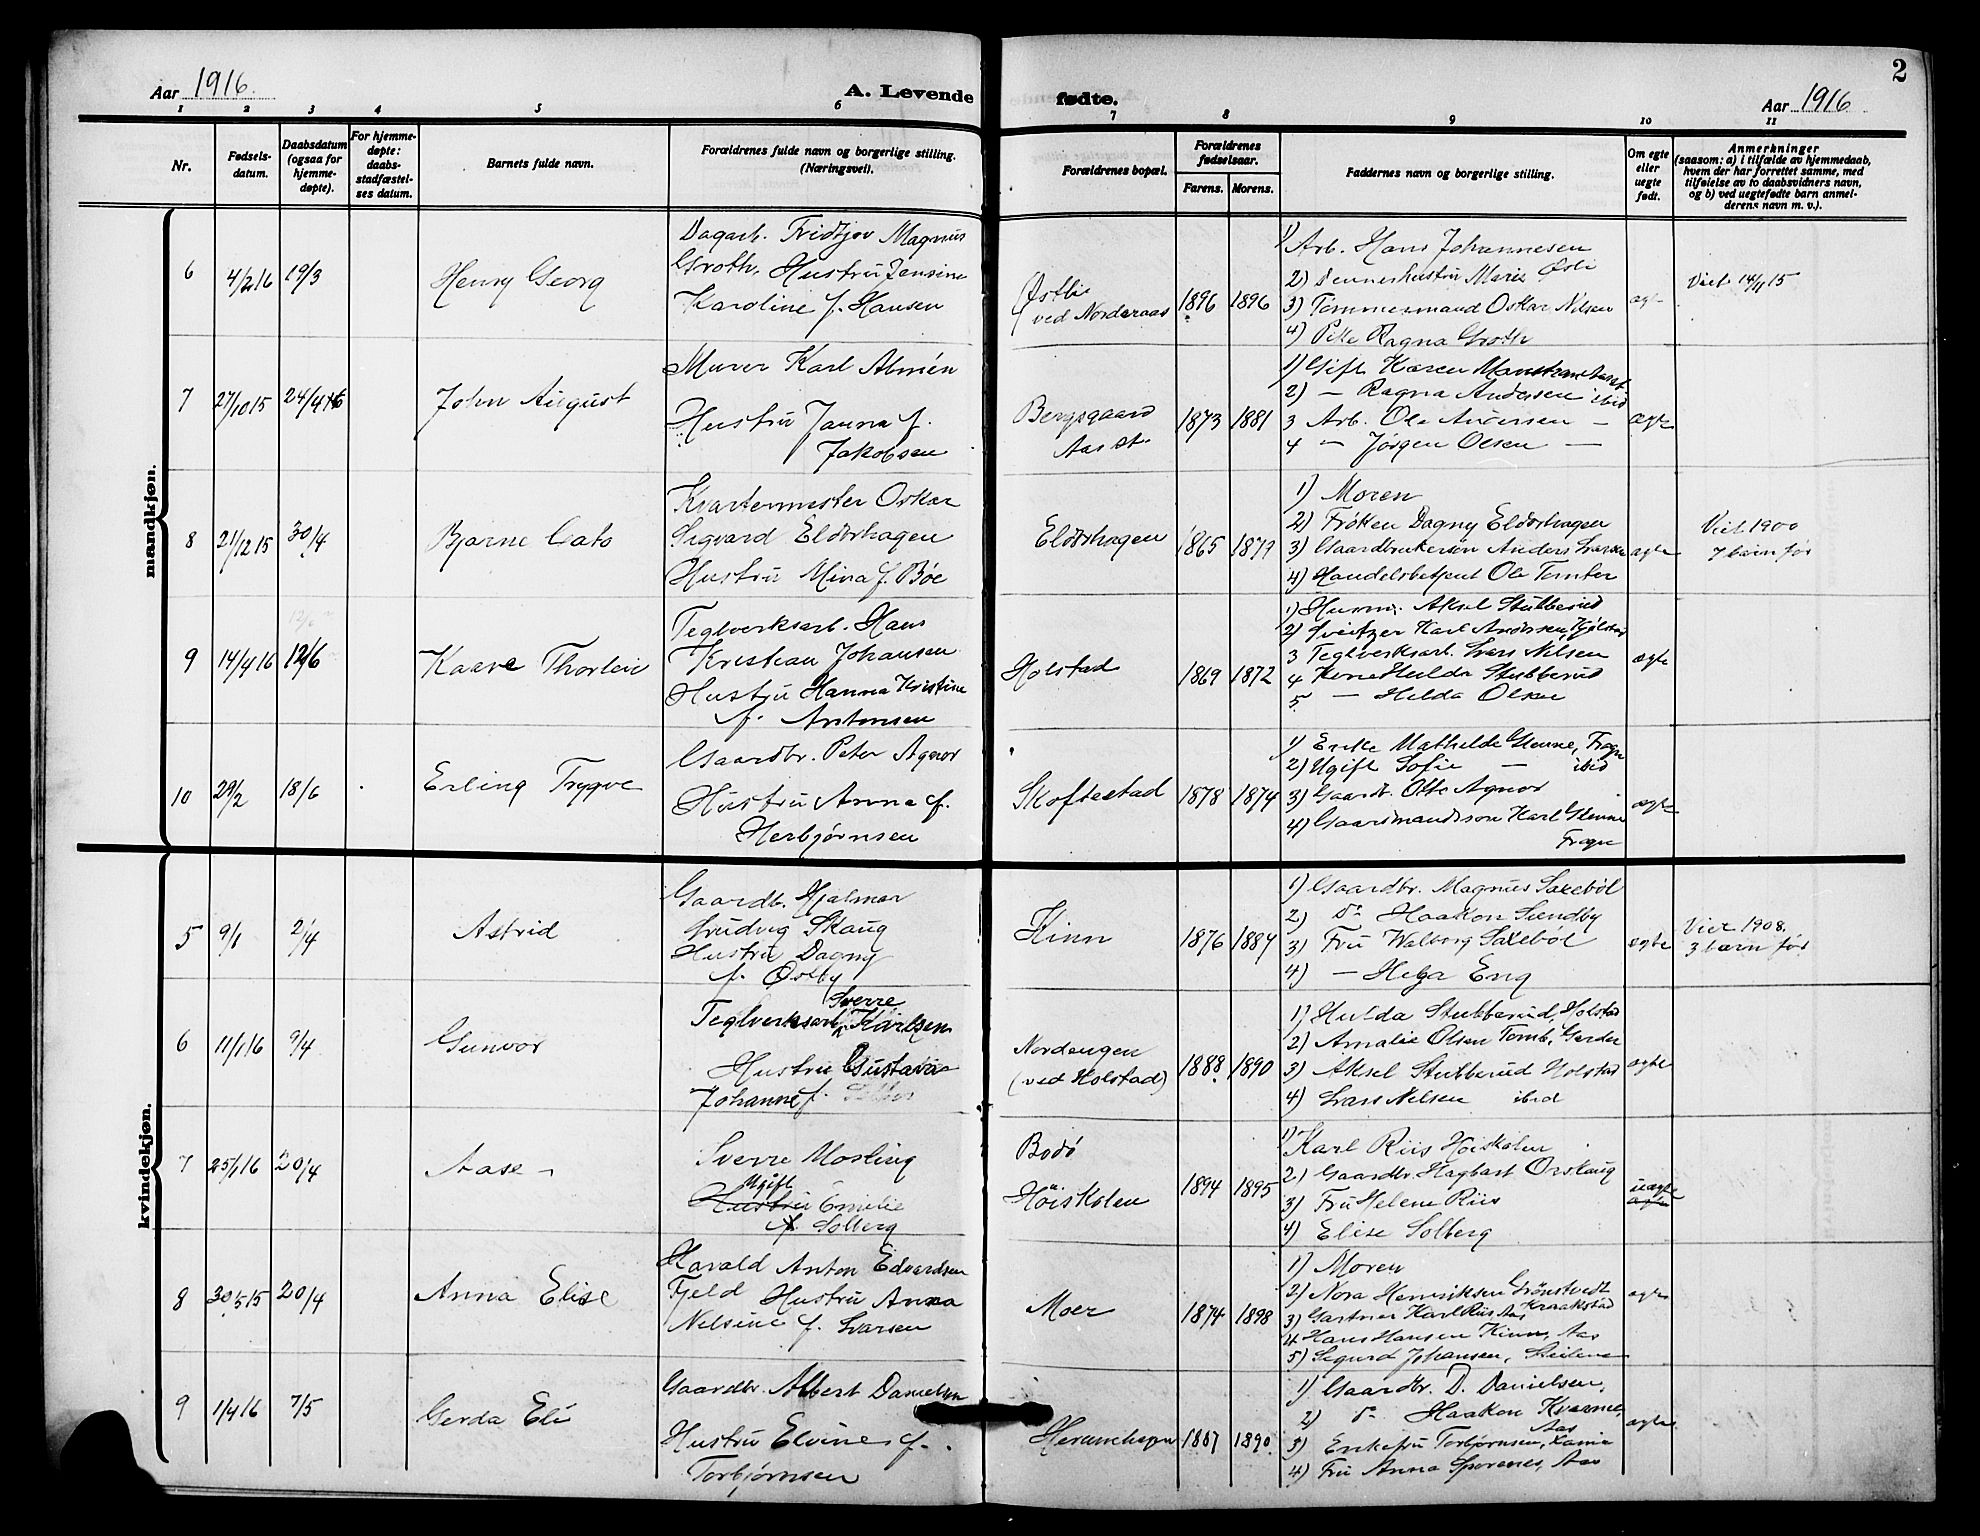 2
Aar 1916.
A. Levende
fødte.
Aar 1916
1 2 3 4 5 6 7 8 9 10 11
Nr.
Fødsels-
datum.
Daabsdatum
(ogsaa for
hjemme-
døpte).
For hjemme-
døpte:
daabs-
stadfæstel-
ses datum.
Barnets fulde navn.
Forældrenes fulde navn og borgerlige stilling.
(Næringsvei).
Forældrenes bopæl.
Forældrenes
fødselsaar.
Farens. Morens.
Faddernes navn og borgerlige stilling.
Om egte
eller
uegte
født.
Anmerkninger
(saasom: a) i tilfælde av hjemmedaab,
hvem der har forrettet samme, med
tilføielse av to daabsvidners navn,
og b) ved uegtefødte barn anmel-
derens navn m. v.).
mandkjøn.
6
4/2 16
19/3
Henry Georg
Dagarb. Fridtjov Magnus
Groth, Hustru Jensine
Karoline f. Hansen
Østlie
ved Norderaas
1896
1896
1) Arb. Hans Johannesen
2) Marie Østli
3) Tømmermand Oskar Nilsen
4) Pike Ragna Groth
ægte
Viet 14/11 15
7
27/10 15
24/4 16
John August
Murer Karl Almén
Hustru Janna f.
Jakobsen
Bergsgaard
Aas st.
1873
1881
1) Gift Karen
2) — Ragna Andersen ibid
3 Arb. Ole Andersen —
4 — Jørgen Olsen —
ægte
8
21/12 15
30/4
Bjarne Cato
Kvartermester Oskar
Sigvard Eldorhagen
Hustru Mina f. Bøe
Eldorhagen
1865
1877
1) Moren
2) Frøken Dagny Eldorhagen
3) Gaardbrukersøn Anders Larsen
4) Handelsbetjent Ole Tomter
ægte
Viet 1900
7 barn før
9
14/4 16
12/6
Kaare Thorleiv
Teglverksarb. Hans
Kristian Johansen
Hustru Hanna Kristine
f. Antonsen
Holstad
1869
1872
1) Aksel Stubberud
2) Sveitzer Karl Andersen, Kjølstad
3 Teglverksarb. Lars Nilsen
4 Kone Hulda Stubberud
5 — Hilda Olsen
ægte
10
29/2
18/6
Erling Trygve
Gaardbr. Peter Agnor
Hustru Anna f.
Herbjørnsen
Skoftestad
1878
1874
1) Enke Mathilde Glenne, Frogn
2) Ugift Sofie — ibid
3) Gaardb. Otto Agnor
4) Gaardmandssøn Karl Glenne
Frogn
ægte
kvindekjøn.
5
9/1
2/4
Astrid
Gaardb. Hjalmar
Ludvig Skaug
Hustru Dagny
f. Østby
Kinn
1876
1884
1) Gaardbr. Magnus Saxebøl
2) do Haakon Sundby
3) Fru Walborg Saxebøl
4) — Helga Eng
ægte
Viet 1908.
3 barn før
6
11/1 16
9/4
Gunvor
Sverre
Teglverksarb. Karlsen
Hustru Gustava
Johanne f.
Nordengen
(ved Holstad)
1888
1890
1) Hulda Stubberud, Holstad
2) Amalie Olsen Tomb, Gerder
3) Aksel Stubberud Holstad
4) Lars Nilsen ibid
ægte
7
25/1 16
20/4
Aase
Sverre Mosling
Ugift
Hustru Emelie
f. Solberg
Bodø
Høiskolen
1894
1895
1) Karl Riis Høiskolen
2) Gaardbr. Hagbart Orskaug
3) Fru Helene Riis
4) Elise Solberg
uægte
ægte
8
30/5 15
20/4
Anna Elise
Harald Anton Edvardsen
Fjeld Hustru Anna
Nelsine f. Larsen
Moer
1874
1898
1) Moren
2) Nora Henriksen Grønstvedt
Kraakstad
3) Gartner Karl Riis Aas
4 Hans Hansen Kinn, Aas
5) Sigurd Johansen,
ægte
9
1/4 16
7/5
Gerda Eli
Gaardbr. Albert Danielsen
Hustru Elvine f.
Torbjørnsen
Herumehagen
1887
1890
1) Gaardbr. D. Danielsen,
2) do Haakon Kvarne,
Aas
3) Enkefru Torbjørnsen,
4) Fru Anna Sporenes, Aas
ægte